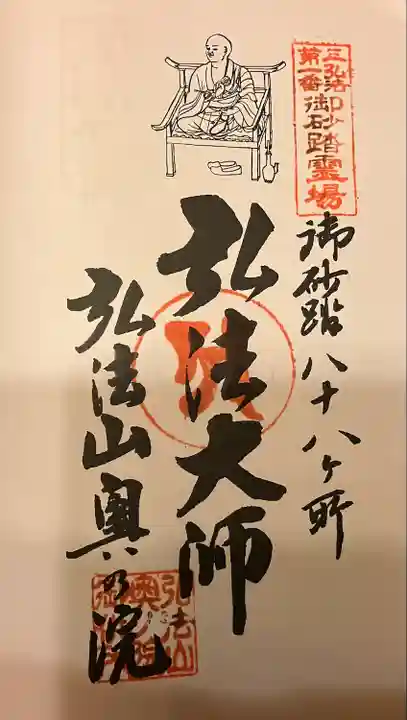 三弘法
第一番
御砂踏霊場
御砂踏八十八ヶ所
弘法大師
弘法山奥の院
弘法山
奥之院